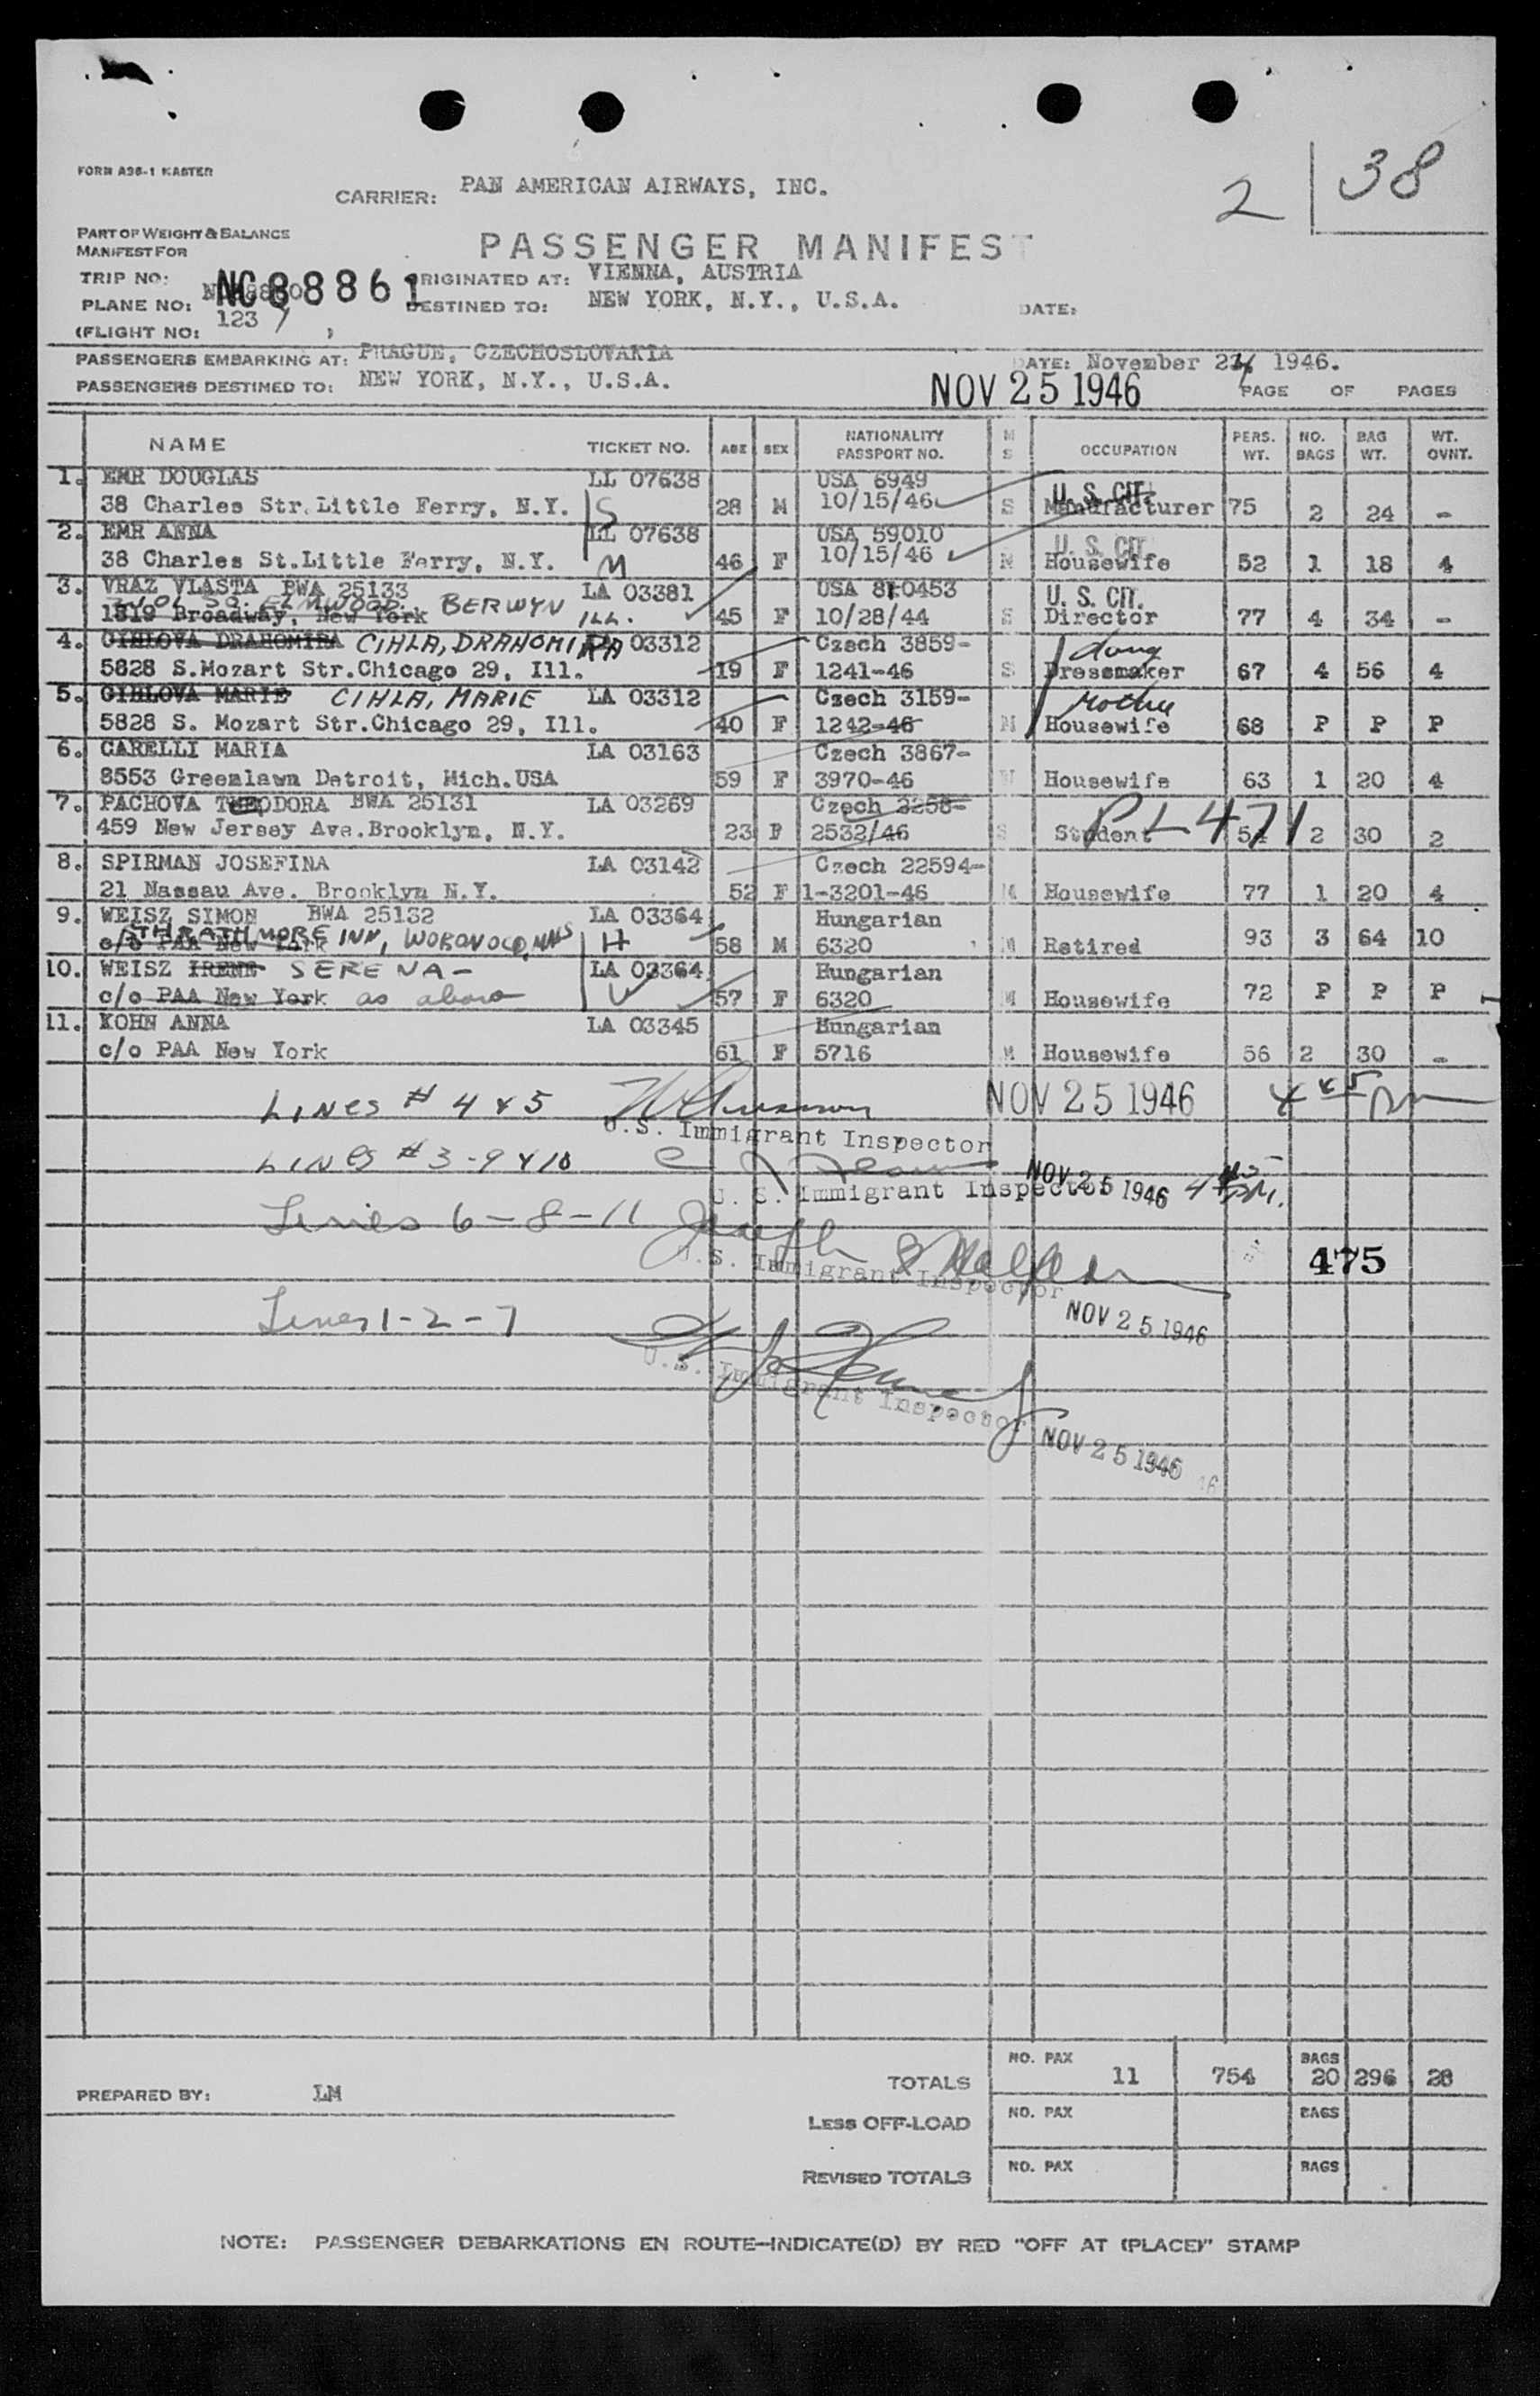 2 | 38
FORM A36-1 MASTER
CARRIER: PAN AMERICAN AIRWAYS, INC.
PART OF WEIGHT & BALANCE
MANIFEST FOR
PASSENGER MANIFEST
TRIP NO: ORIGINATED AT: VIENNA, AUSTRIA
PLANE NO: NC88861 DESTINED TO: NEW YORK, N.Y., U.S.A. DATE:
(FLIGHT NO: 123 )
PASSENGERS EMBARKING AT: PRAGUE, CZECHOSLOVAKIA DATE: November 1946.
PASSENGERS DESTINED TO: NEW YORK, N.Y., U.S.A. NOV 25 1946 PAGE OF PAGES
NAME TICKET NO. AGE SEX NATIONALITY PASSPORT NO. M S OCCUPATION PERS. WT. NO. BAGS BAG WT. WT. OVNT.
1. EMR DOUGLAS LL 07638 USA 6949 U. S. CIT.
38 Charles Str.Little Ferry, N.Y. S 28 M 10/15/46 S Manufacturer 75 2 24 -
2. EMR ANNA LL 07638 USA 59010 U. S. CIT.
38 Charles St.Little Ferry, N.Y. M 46 F 10/15/46 M Housewife 52 1 18 4
3. VRAZ VLASTA BWA 25133 LA 03381 USA U. S. CIT.
SO. ELMWOOD. BERWYN ILL.
1819 Broadway, New York 45 F 10/28/44 S Director 77 4 34 -
4. CIHLOVA DRAHOMIRA CIHLA, DRAHOMIRA 03312 Czech 3859-
5828 S.Mozart Str.Chicago 29, Ill. 19 F 1241-46 S Dressmaker 67 4 56 4
5. CIHLOVA MARIE CIHLA, MARIE LA 03312 Czech 3159- Mother
5828 S. Mozart Str.Chicago 29, Ill. 40 F 1242-46 M Housewife 68 P P P
6. CARELLI MARIA LA 03163 Czech 3867-
8553 Greenlawn Detroit, Mich.USA 59 F 3970-46 Housewife 63 1 20 4
7. PACHOVA THEODORA BWA 25131 LA 03269 Czech 3258- PL 471
459 New Jersey Ave.Brooklyn, N.Y. 23 F 2532/46 S Student 54 2 30 2
8. SPIRMAN JOSEFINA LA 03142 Czech 22594-
21 Nassau Ave. Brooklyn N.Y. 52 F 1-3201-46 M Housewife 77 1 20 4
9. WEISZ SIMON BWA 25132 LA 03364 Hungarian
STHRATHMORE INN,
c/o PAA New York H 58 M 6320 M Retired 93 3 64 10
10. WEISZ IRENE SERENA - LA 03364 Hungarian
c/o PAA New York as above 57 F 6320 M Housewife 72 P P P
11. KOHN ANNA LA 03345 Hungarian
c/o PAA New York 61 F 5716 M Housewife 56 2 30 -
LINES # 4 & 5 NOV 25 1946
U.S. Immigrant Inspector
LINES # 3-9 & 10
U. S. Immigrant Inspector NOV 25 1946
Lines 6-8-11 Joseph
U.S. Immigrant Inspector 475
NOV 25 1946
Lines 1-2-7
U.S. Immigrant Inspector
NOV 25 1946
TOTALS NO. PAX 11 754 BAGS 20 296 28
PREPARED BY: LM
LESS OFF-LOAD NO. PAX BAGS
REVISED TOTALS NO. PAX BAGS
NOTE: PASSENGER DEBARKATIONS EN ROUTE-INDICATE(D) BY RED "OFF AT (PLACE)" STAMP